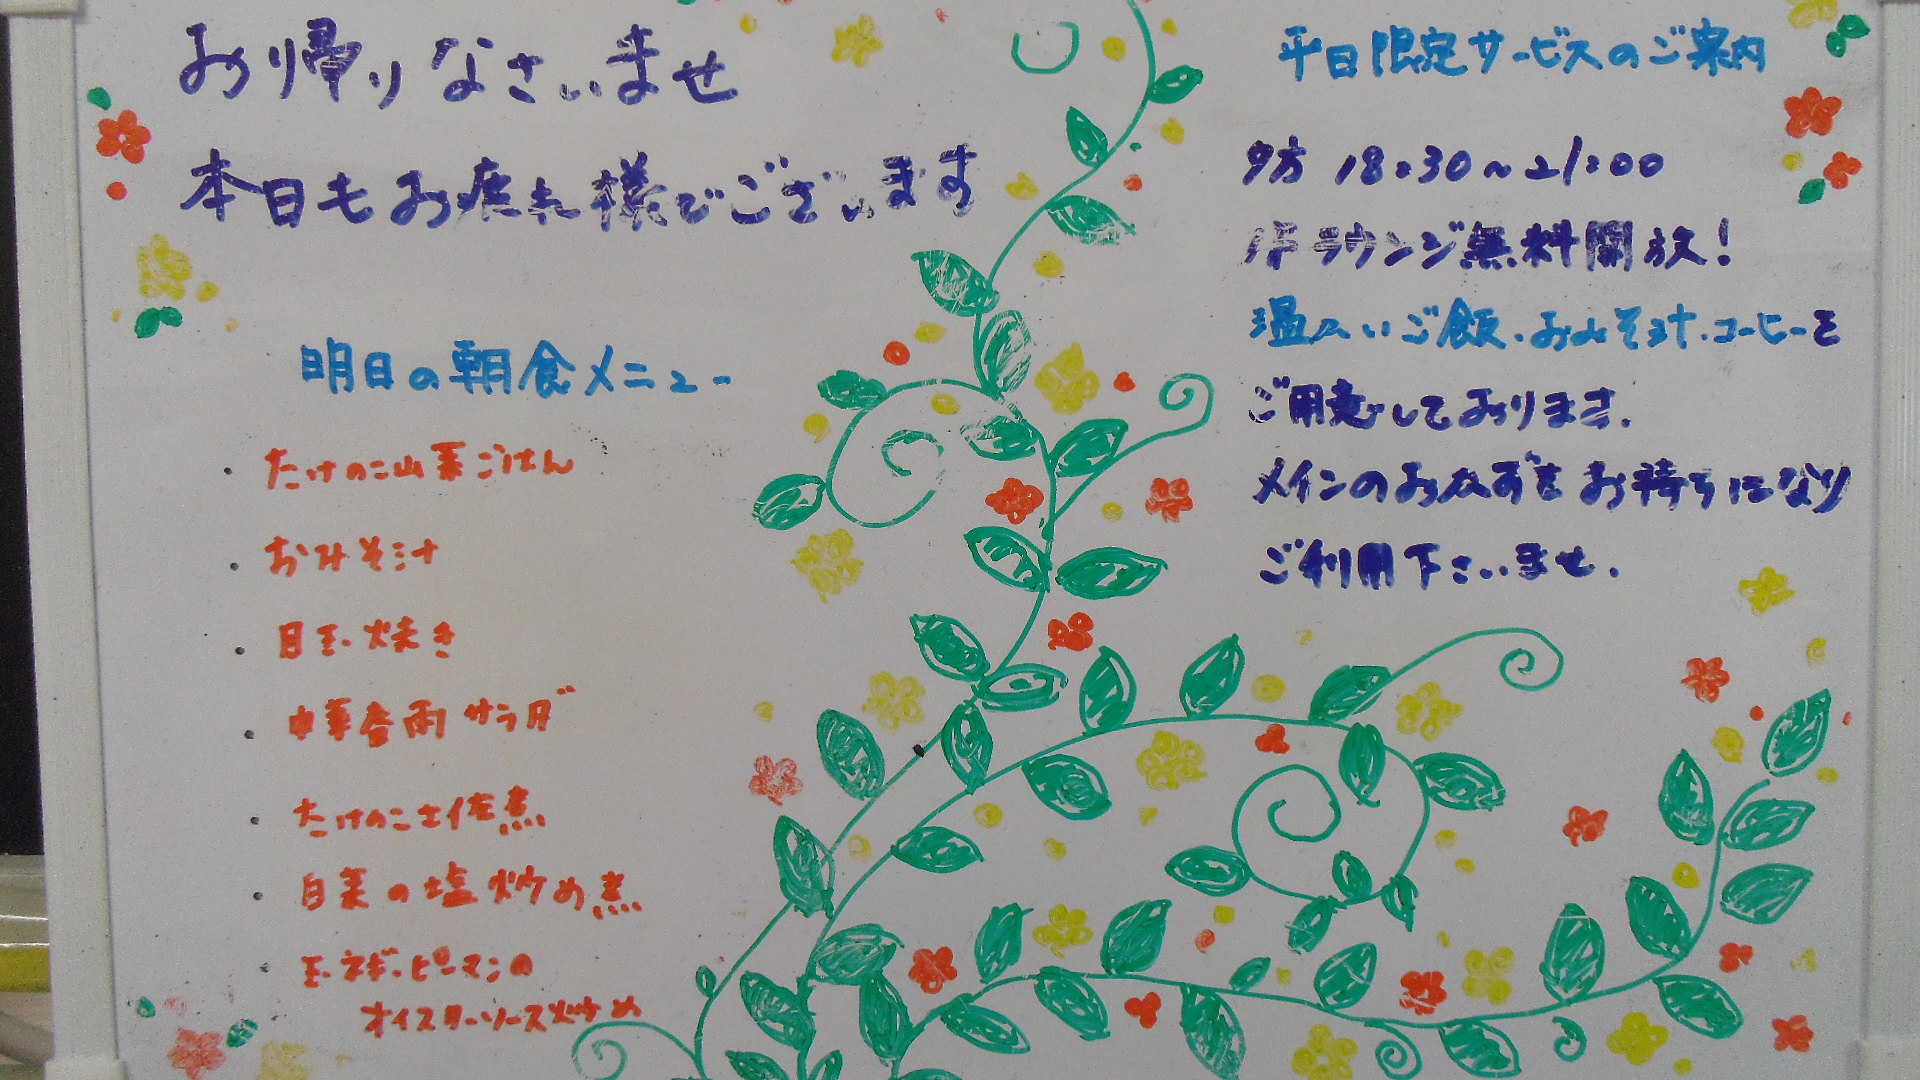 おり帰りなさいませ
本日もお疲れ様でございます
明日の朝食メニュー
・たけのこ山菜ごはん
・おみそ汁
・目玉焼き
・中華春雨サラダ
・たけのこ土佐煮
・白菜の塩炒め煮
・玉ネギ・ピーマンの
オイスターソース炒め
平日限定サービスのご案内
夕方 18:30~21:00
1Fラウンジ無料開放!
温かいご飯・おみそ汁・コーヒーを
ご用意しております。
メインのおかずをお持ちになり
ご利用下さいませ。